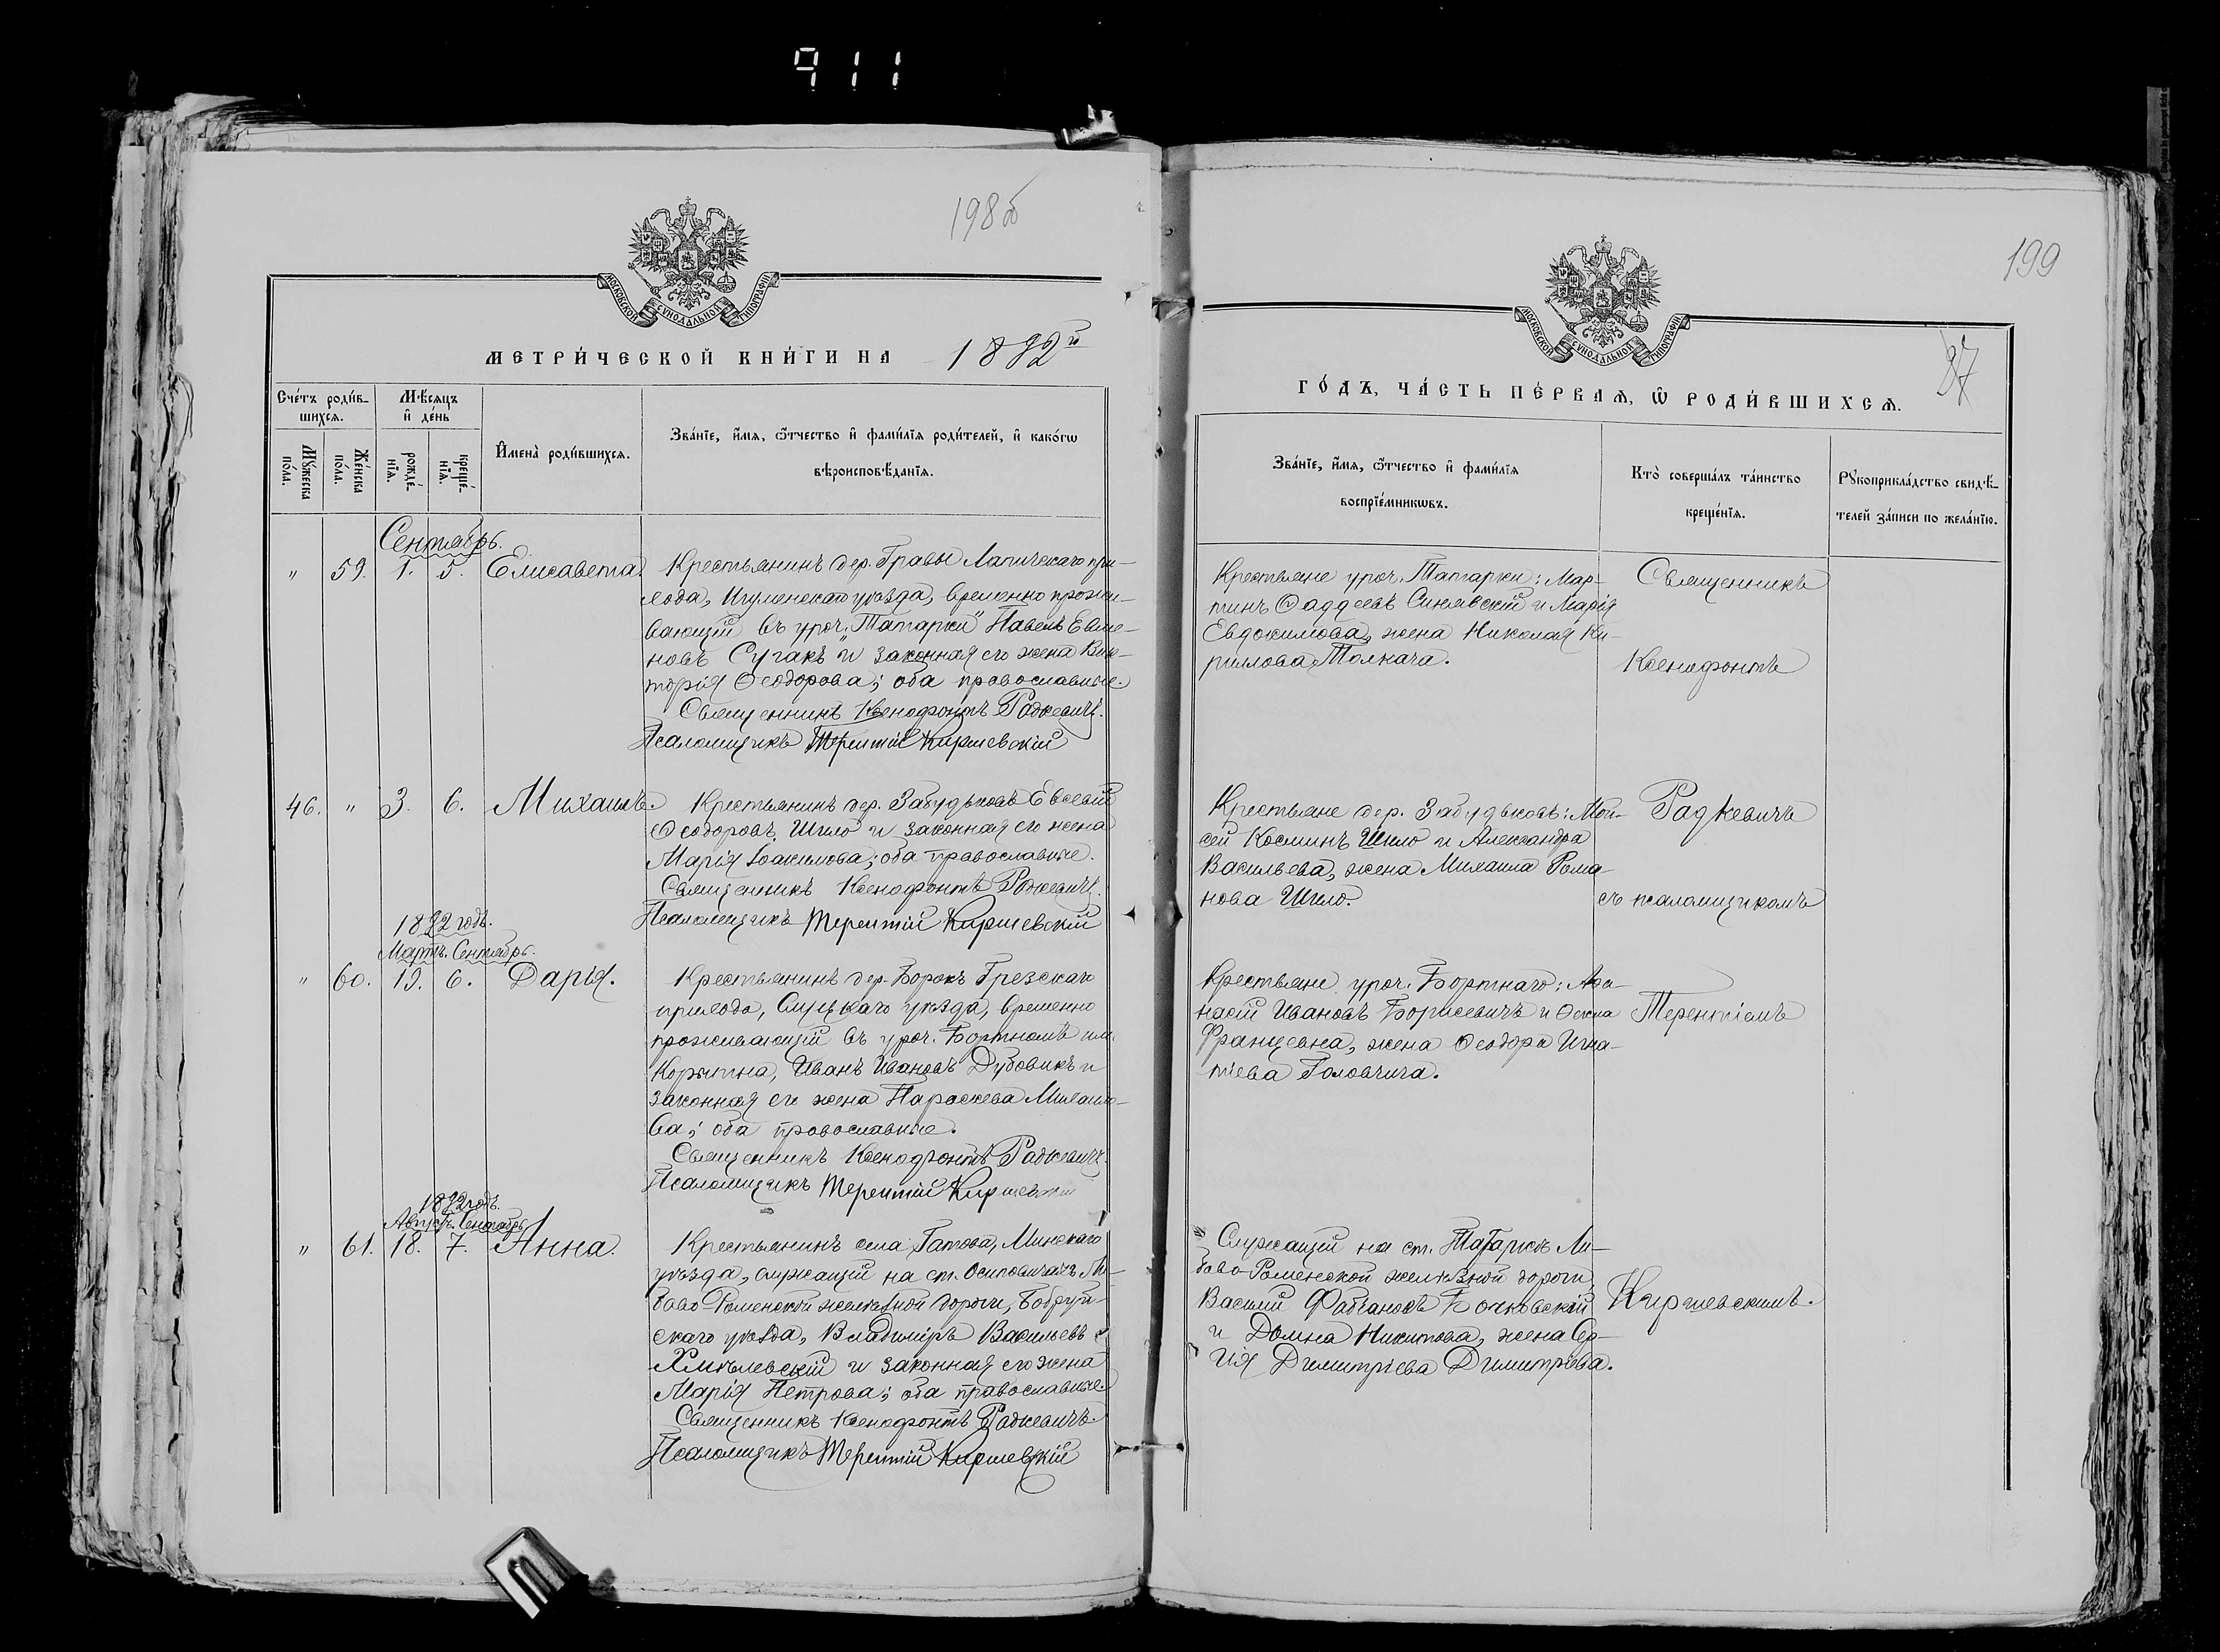 911
198об
МОСКОВСКОЙ СѴНОДАЛЬНОЙ ТИПОГРАФІИ
МЕТРИ́ЧЕСКОЙ КНИ́ГИ НА 1892й
Сче́тъ роди́вшихсѧ.
Мѣ́сѧцъ и҆ де́нь
Мꙋ́жеска по́ла.
Же́нска по́ла.
рожде́нїѧ.
креще́нїѧ.
И҆мена̀ роди́вшихсѧ.
Зва́нїе, и҆́мѧ, ѻ҆́тчество и҆ фами́лїѧ роди́телей, и҆ како́гѡ
вѣроисповѣ́данїѧ.
Сентябрь.
" 59. 1. 5. Елисавета.
Крестьянинъ дер. Гравы Лапическаго при-
хода, Игуменскаго уѣзда, временно прожи-
вающій въ уроч. "Татарки" Павелъ Евме-
новъ Сугакъ и законная его жена Вик-
торія Ѳеодорова; оба православные.
Священникъ Ксенофонтъ Радкевичъ.
Псаломщикъ Терентій Киршевскій
46. " 3. 6. Михаилъ.
Крестьянинъ дер. Забудьковъ Евсевій
Ѳеодоровъ Шило и законная его жена
Марія Іоакимова; оба православные.
Священникъ Ксенофонтъ Радкевичъ.
Псаломщикъ Терентій Киршевскій
1892 годъ.
Мартъ. Сентябрь.
" 60. 19. 6. Дарія.
Крестьянинъ дер. Борокъ Грезскаго
прихода, Слуцкаго уѣзда, временно
проживающій въ уроч. Бортномъ им.
Корытна, Иванъ Ивановъ Дубовикъ и
законная его жена Параскева Михаило-
ва; оба православные.
Священникъ Ксенофонтъ Радкевичъ.
Псаломщикъ Терентій Киршевскій
1892 годъ.
Августъ. Сентябрь
" 61. 18. 7. Анна.
Крестьянинъ села Гатова, Минскаго
уѣзда, служащій на ст. Осиповичахъ Ли-
баво-Роменской желѣзной дороги, Бобруй-
скаго уѣзда, Владиміръ Васильевъ
Хмѣлевскій и законная его жена
Марія Петрова; оба православные.
Священникъ Ксенофонтъ Радкевичъ.
Псаломщикъ Терентій Киршевскій
199
87
МОСКОВСКОЙ СѴНОДАЛЬНОЙ ТИПОГРАФІИ
ГО́ДЪ, ЧА́СТЬ ПЕ́РВАѦ, Ѽ РОДИ́ВШИХСѦ.
Зва́нїе, и҆́мѧ, ѻ҆́тчество и҆ фами́лїѧ
воспрїе́мникѡвъ.
Кто̀ соверша́лъ та́инство
креще́нїѧ.
Рꙋкоприкла́дство свидѣ́-
телей за́писи по жела́нїю.
Крестьяне уроч. Татарки: Мар-
тинъ Ѳаддеевъ Синявскій и Марія
Евдокимова, жена Николая Ки-
риллова Толкача.
Священникъ
Ксенофонтъ
Крестьяне дер. Забудьковъ: Мои-
сей Косминъ Шило и Александра
Васильева, жена Михаила Рома-
нова Шило.
Радкевичъ
съ псаломщикомъ
Крестьяне уроч. Бортнаго: Аѳа-
насій Ивановъ Борисевичъ и Ѳекла
Францевна, жена Ѳеодора Игна-
тіева Головчича.
Терентіемъ
Служащій на ст. Татаркѣ Ли-
баво-Роменской желѣзной дороги
Василій Фабіановъ Бочковскій
и Домна Никитова, жена Сер-
гія Димитріева Димитріева.
Киршевскимъ.